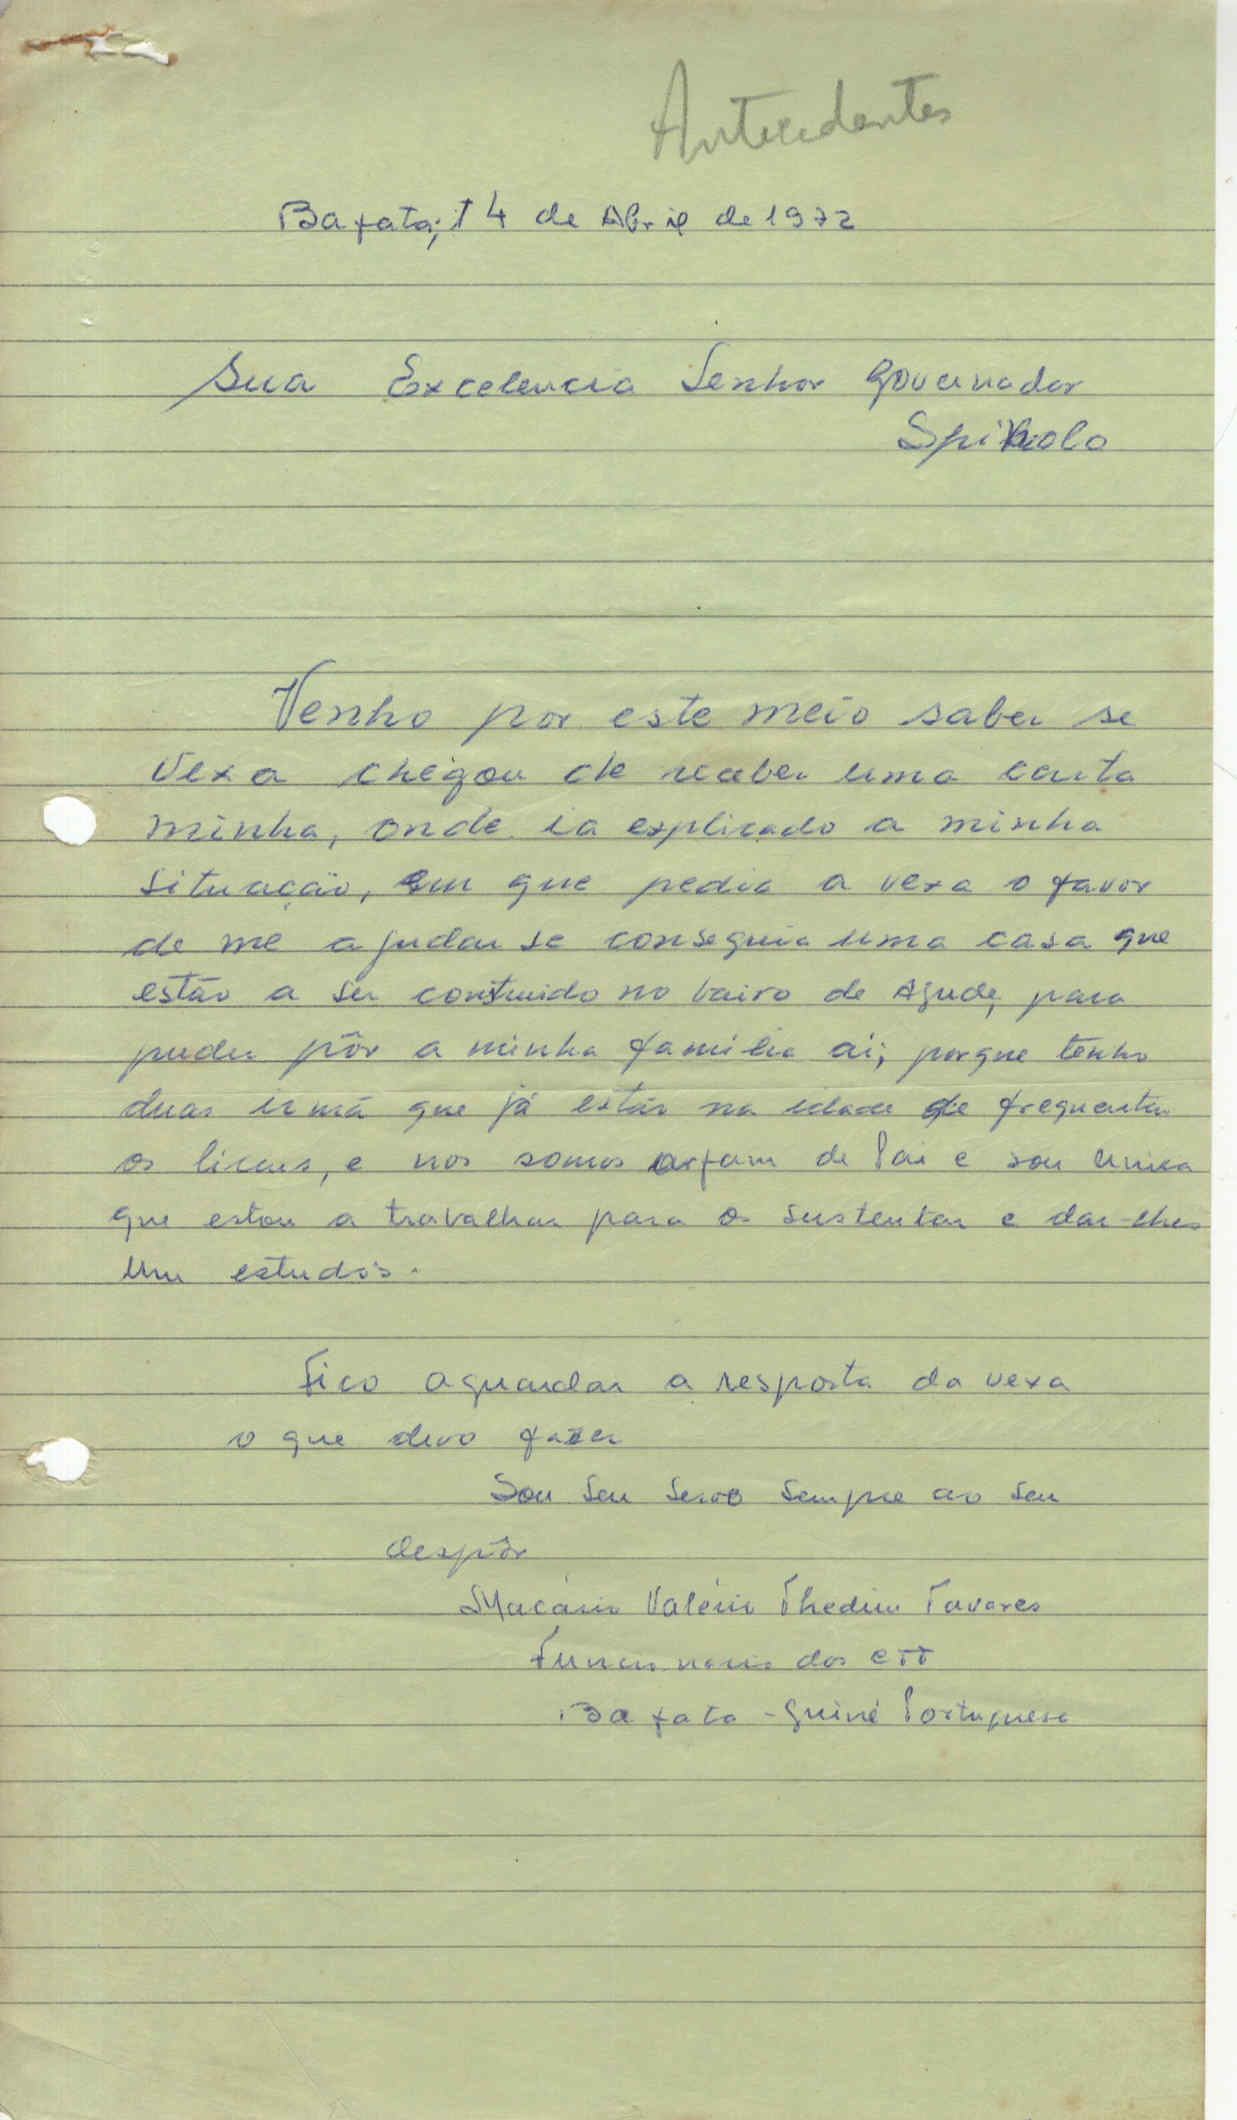 Antecedentes
Bafata; 14 de Abril de 1972
Sua Excelencia Senhor Governador
Spinola
Venho por este meio saber se
Vexa chegou de receber uma carta
minha, onde ia explicado a minha
situação, em que pedia a vexa o favor
de me ajudar se conseguia uma casa que
estão a ser construido no bairo de Ajuda, para
puder pôr a minha familia ai; porque tenho
duas irmã que já estão na idade de frequentar
os liceus, e nos somos orfam de Pai e sou unica
que estou a travalhar para os sustentar e dar-lhes
um estudos.
Fico aguardar a resposta da vexa
o que devo fazer
Sou seu servo sempre ao seu
despôr
Macário Valério Thedim Tavares
Funcionario dos CTT
Bafata - Guiné Portuguesa